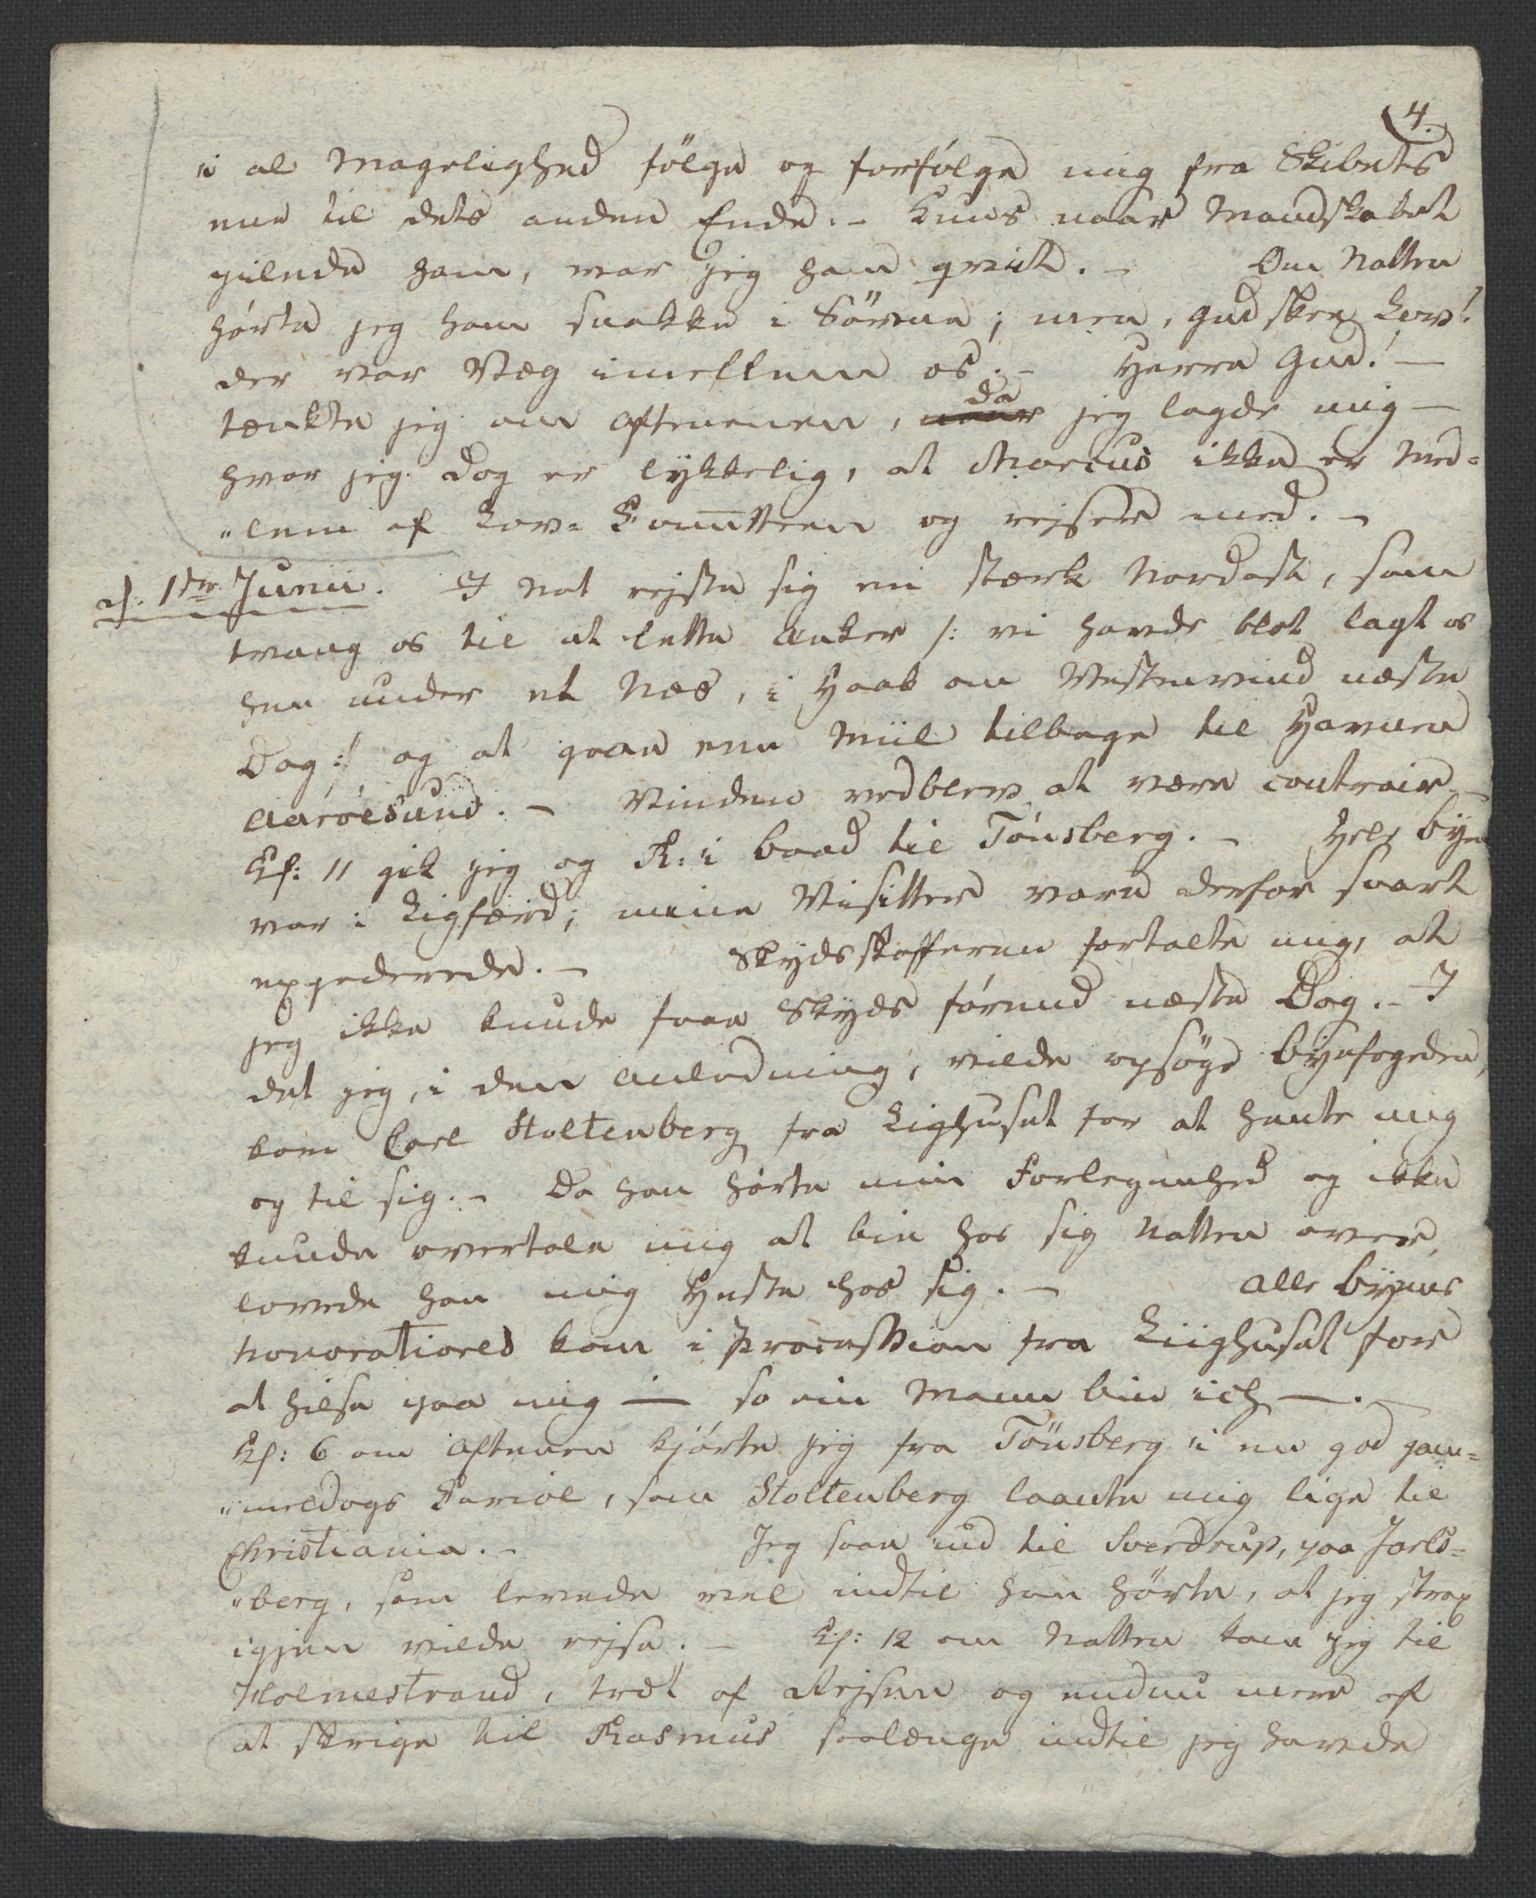 4.
i al Magelighed følge og forfølge mig fra Skibets
ene til dets anden Ende. – Kuns naar Mandskabet
pilede ham, var jeg ham qvit. – Om Natten
hørte jeg ham snakke i Søvne; men, Gud skee Lov!
der var Væg imellem os. – Herre Gud! –
tænkte jeg om Aftenen, naar da jeg lagde mig –
hvor jeg dog er lykkelig, at Marcus ikke er Med=
„lem af Lov-Comitteen og rejser med. –
d. 1ste Junii. I Nat rejste sig en stærk Nordost, som
tvang os til at lette Anker /: vi havde blot lagt os
hen under et Næs, i Haab om Vestenvind næste
Dag :/ og at gaae een Miil tilbage til Havnen
Aarøesund. – Vinden vedblev at være contrair. –
Kl: 11 gik jeg og R: i Baad til Tønsberg. – Hele Byen
var i Ligfærd; mine Visitter vare derfor snart
expederede. – Skydsskafferen fortalte mig, at
jeg ikke kunde faae Skyds førend næste Dag. – I
det jeg, i den Anledning, vilde opsøge Byefogeden,
kom Carl Stoltenberg fra Liighuset for at hente mig
og til sig. – Da han hørte min Forlegenhed og ikke
kunde overtale mig at blie hos sig Natten over,
lovede han mig Heste hos sig. – Alle Byens
Honoratiores kom i Procession fra Liighuset for
at hilse paa mig – so ein Mann bin ich –. –
Kl: 6 om Aftenen kjørte jeg fra Tønsberg i en god gam=
„meldags Cariol, som Stoltenberg laante mig lige til
Christiania. – Jeg saae ind til Sverdrup, paa Jarls=
„berg, som levede vel indtil han hørte, at jeg strax
igjen vilde rejse. – Kl: 12 om Natten kom jeg til
Holmestrand, træt af Rejsen og endnu mere af
at skrige til Rasmus saalænge indtil jeg havde